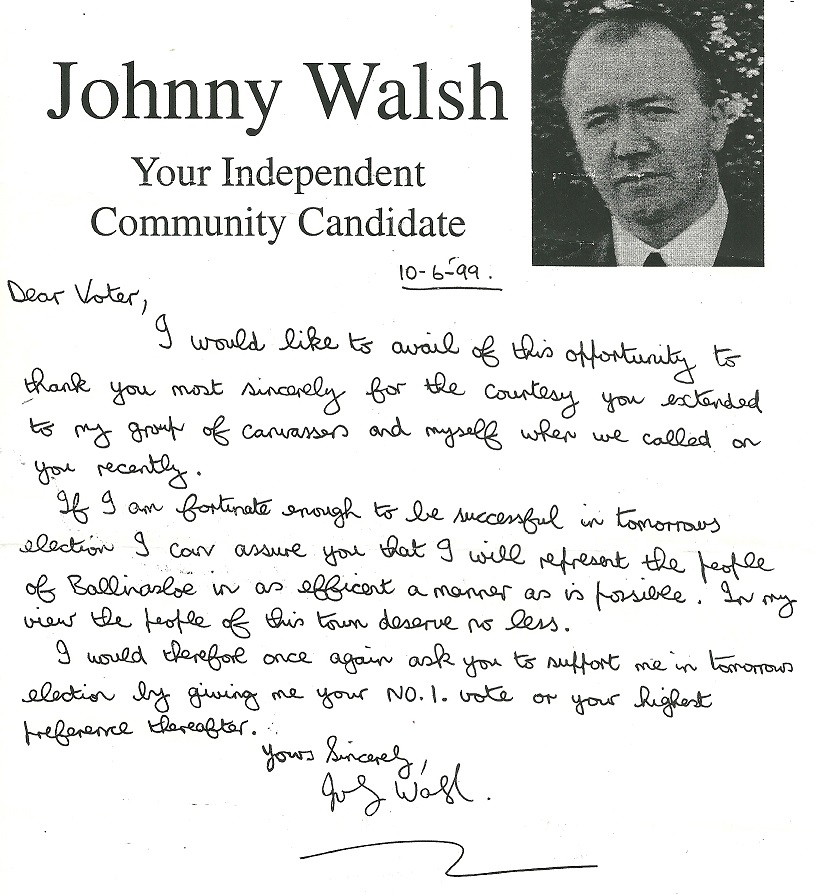 Johnny Walsh
Your Independent
Community Candidate
10-6-99.
Dear Voter,
I would like to avail of this opportunity to
thank you most sincerely for the courtesy you extended
to my group of canvassers and myself when we called on
you recently.
If I am fortunate enough to be successful in tomorrows
election I can assure you that I will represent the people
of Ballinasloe in as efficent a manner as is possible. In my
view the people of this town deserve no less.
I would therefore once again ask you to support me in tomorrows
election by giving me your NO.1. vote or your highest
preference thereafter.
Yours Sincerely,
Johnny Walsh.